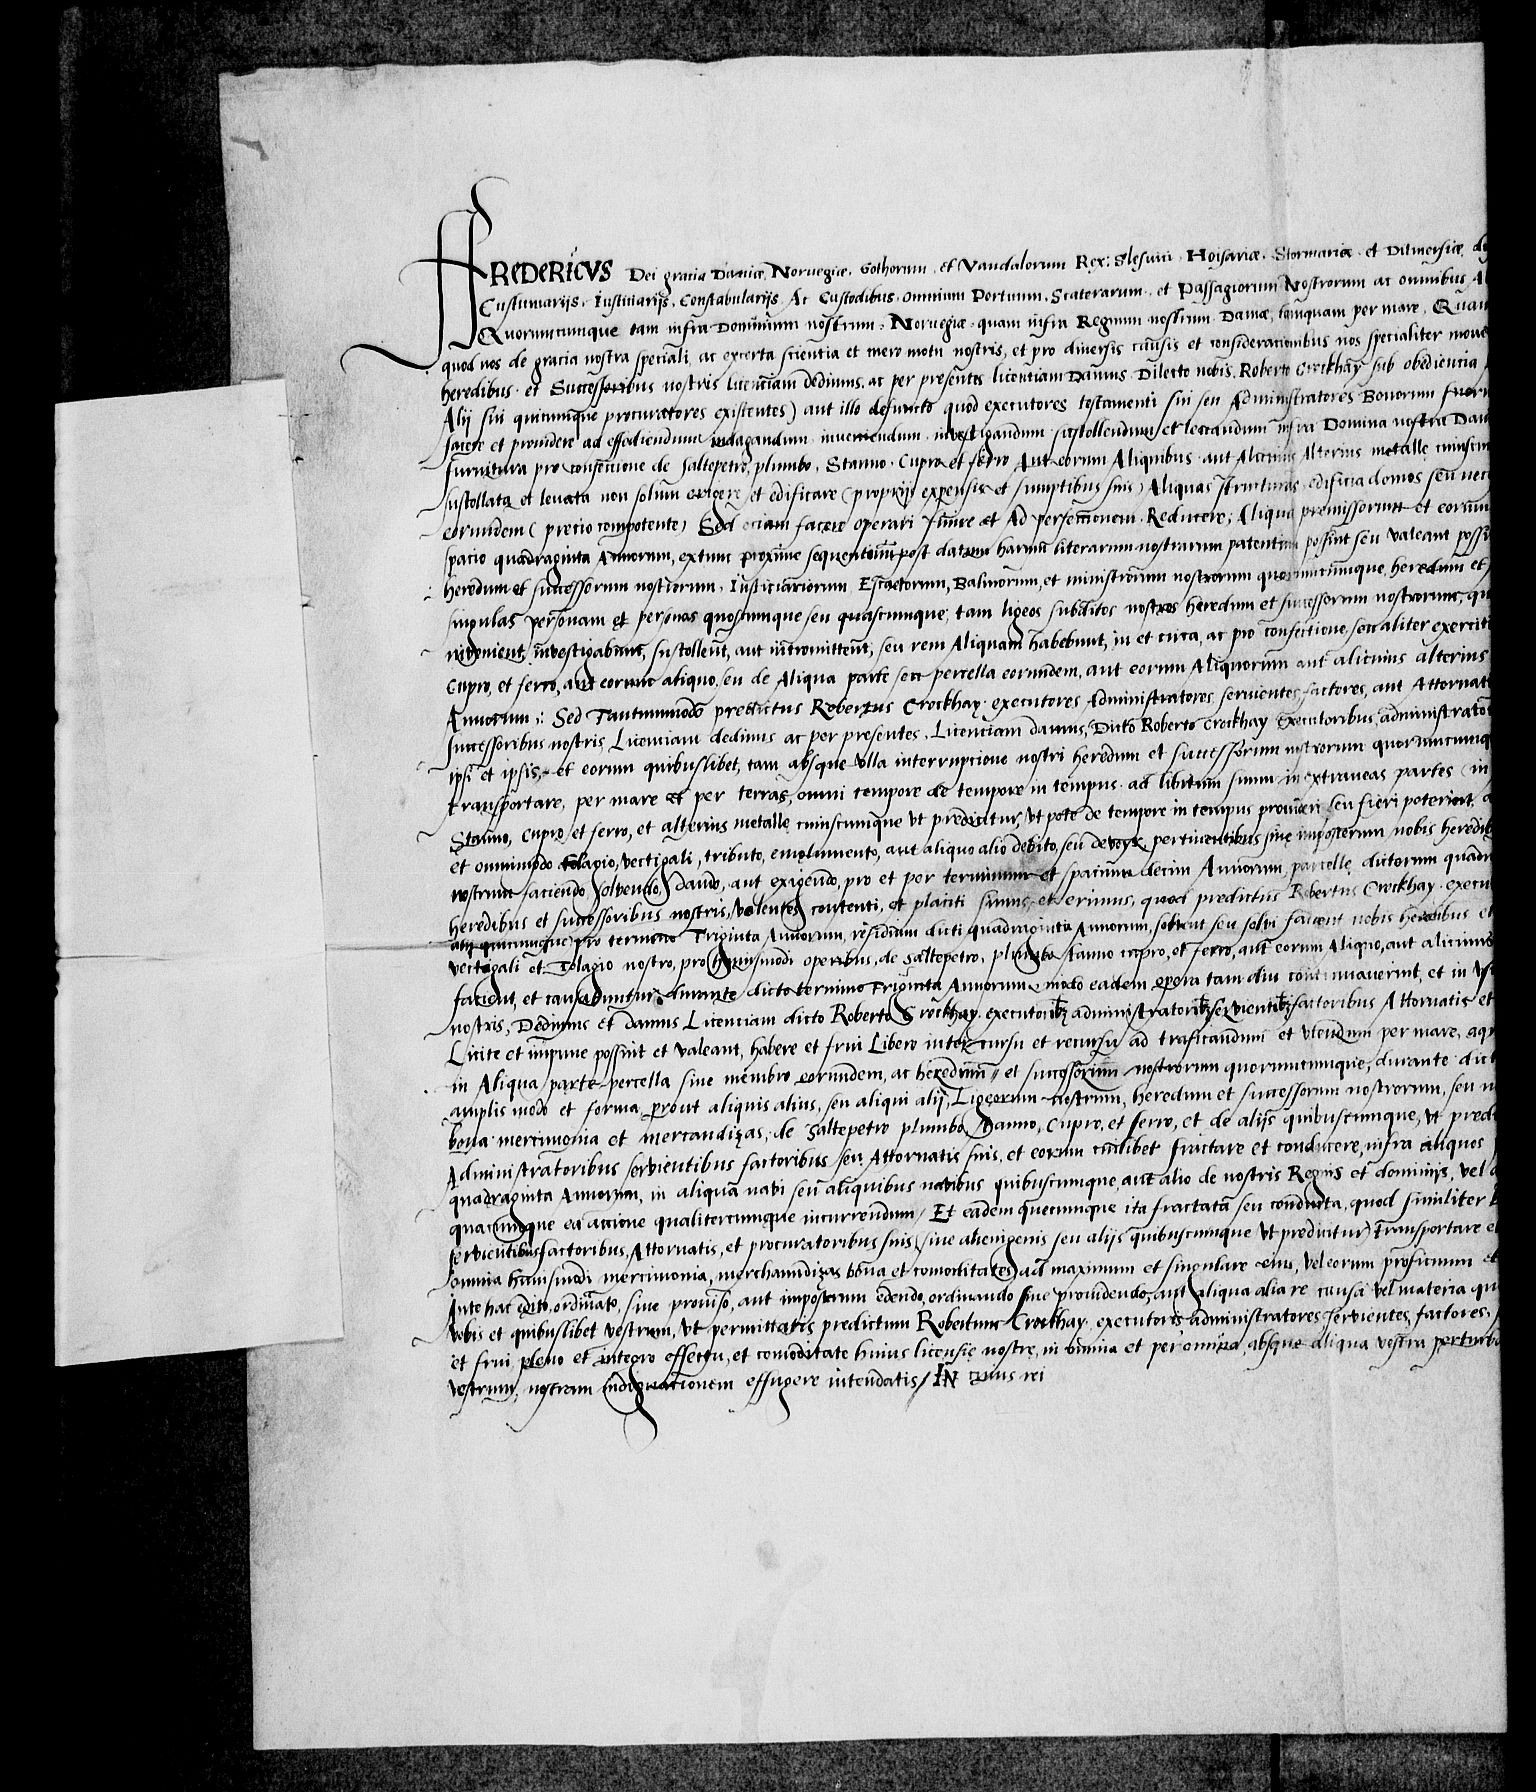 FREDERICVS Dei gracia Daniæ, Norvegiæ, Gothorum, et Vandalorum Rex: Slesvici, Holsariæ, Stormariæ, et Ditmersiæ,
Custumarijs, Iustitiarijs, Constabularijs, Ac Custodibus, omnium Portuum, Scaterarum, et Passagiorum Nostrorum ac omnibus
Quorumcunque tam infra Dominium nostrum, Norvegiæ, quam infra Regnum nostrum Daniæ, tamquam per mare,
quod nos de gracia nostra speciali, ac excerta scientia et mero motu nostris, et pro diversis causis et considerationibus nos specialiter
heredibus et Successoribus nostris licenciam dedimus, ac per presentes licentiam Damus Dilecto nobis, Roberto Crockhay sub obediencia
Alij sui quicunque procuratores existentes) aut illo defuncto quod executores testamenti sui seu Administratores Bonorum
facere et providere ad effodiendum indagandum inveniendum investigandum sustollendum et levandum infra Dominia nostra
furnitura pro confectione de saltepetro, plumbo, Stanno, Cupro et ferro Aut eorum Aliquibus aut Alicuius Alterius metalle
sustollata et levata non solum erigere et edificare (proprijs expensis et sumptibus suis) Aliquas structuras, edificia domos seu
eorumdem (precio competente) Sed eciam facere operari Fundere et Ad perfectionem Reducere, Aliqua premissorum et
spacio quadraginta Annorum, extunc proxime sequentium post datum harum literarum nostrarum patentium possint seu valeant
heredum et successorum nostrorum, Iusticiariorum Escaetorum, Balivorum, et ministrorum nostrorum quorumcumque, heredum et
singulas personam et personas quoscumque seu quascumque, tam ligeos subditos nostros heredum et successorum nostrorum,
invenient, investigabunt, sustollent, aut intromittent, seu rem Aliquam habebunt, in et circa, ac pro confectione, seu aliter
Cupro, et ferro, aut eorum aliquo, seu de Aliqua parte seu percella eorundem, aut eorum Aliquorum aut alicuius alterius
Annorum, Sed Tantummodo predictus Robertus Crockhay executores Administratores servientes, factores, aut
successoribus nostris, Licenciam dedimus ac per presentes, Licenciam damus, Dicto Roberto Crockhay Executoribus,
ipsi et ipsis, et eorum quibuslibet, tam absque ulla interrupcione nostri heredum et successorum nostrorum
transportare, per mare et per terras, omni tempore de tempore in tempus ad libitum suum in extraneas partes in
Stanno, cupro, et ferro, et alterius metalle cuiuscumque ut predicitur, ut pote de tempore in tempus provideri seu fieri poterint,
et omnimodo tolagio, vectigali, tributo, emolumento, aut aliquo alio debito, seu devoyr, pertinentibus sive imposterum nobis
nostrum faciendo, solvendo, dando, aut exigendo, pro et per terminum et spacium decim Annorum, parcelle, dictorum
heredibus et successoribus nostris, volentes contenti, et placiti sumus, et erimus, quod predictus Robertus Crockhay
alij quicunque) pro termino Triginta Annorum, residium dicti quadraginta Annorum, solvent seu solvi facient nobis heredibus et
vectigali et Tolagio nostro, pro huiusmodi operibus, de saltepetro, plumbo, stanno cupro, et ferro, aut eorum Aliquo, aut
facient, et causabuntur, durante dicto termino Triginta Annorum, modo eadem opera tam diu continuaverint, et in
nostris, Dedimus et damus Licenciam dicto Roberto Crockhay executoribus administratoribus servientibus factoribus Attornatis et
Licite et impune possint et valeant, habere et frui Libero intercursu et recursu ad traficandum et utendum per mare,
in Aliqua parte percella sive membro eorundem, ac heredum et successorum nostrorum quorumcumque, durante
amplis modo et forma, prout aliquis alius, seu aliqui alij, Ligeorum nostrum, heredum et successorum nostrorum, seu
bona mercimonia et mercandizas, de saltepetro plumbo, stanno, cupro, et ferro, et de alijs quibuscumque, ut
Administratoribus servientibus factoribus seu Attornatis suis, et eorum cuilibet fractare et conducere, infra aliquos
quadraginta Annorum, in aliqua navi seu aliquibus navibus quibuscumque, aut alio de nostris Regnis et dominijs, vel
quacunque ea accione qualitercumque incurrendum, Et eadem quecumque ita fractata seu conducta, quod similiter
servientibus factoribus, Attornatis, et procuratoribus suis (sive alienigenis seu alijs quibuscumque ut predicitur) transportare
omnia huiusmodi mercimonia, merchandizas bona et comoditates ad maximum et singulare eius, vel eorum proficuum et
Ante hac edito, ordinato, sive proviso, aut imposterum edendo, ordinando sive providendo, aut aliqua alia re causa vel materia
vobis et quibuslibet vestrum, ut permittatis predictum Robertum Crockhay, executores administratores servientes, factores,
et frui, pleno et integro effectu, et comoditate huius licensie nostre, in omnia et per omnia, absque aliqua vestra
vestrum, nostram indignationem effugere intendatis, IN cuius rei